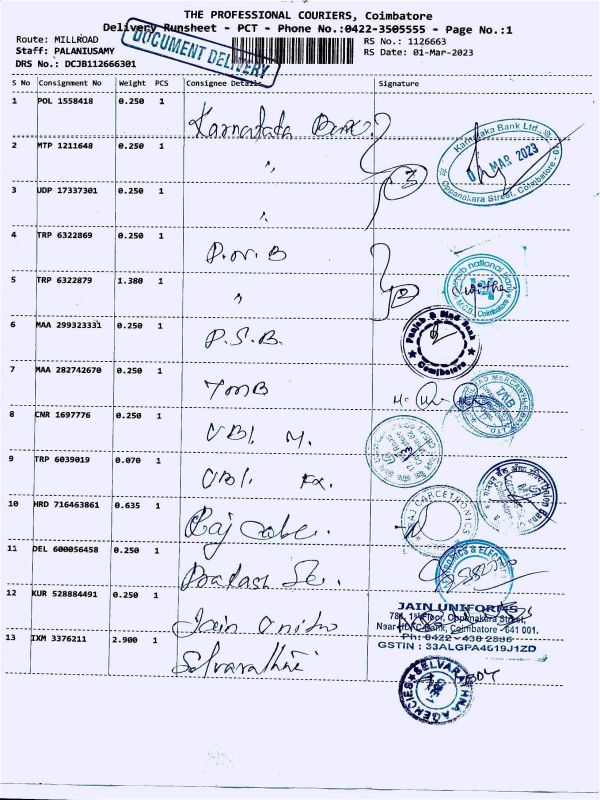 THE PROFESSIONAL COURIERS, Coimbatore
Delivery Runsheet - PCT - Phone No.:0422-3505555 - Page No.:1
Route: MILLROAD
RS No.: 1126663
Staff: PALANIUSAMY
RS Date: 01-Mar-2023
DRS No.: DCJB112666301
DOCUMENT DELIVERY
S No Consignment No Weight PCS Consignee Details Signature
1 POL 1558418 0.250 1 Karnataka Bank
Karnataka Bank Ltd.,
01 MAR 2023
Oppanakara Street, Coimbatore - 01
2 MTP 1211648 0.250 1 "
3
3 UDP 17337301 0.250 1 "
4 TRP 6322869 0.250 1 P.N.B
5 TRP 6322879 1.380 1 "
2
Punjab national Bank
Coimbatore
6 MAA 299323331 0.250 1 P.S.B.
Punjab & Sind Bank
Coimbatore
7 MAA 282742670 0.250 1 TMB
TMB
8 CNR 1697776 0.250 1 UBI. M.
9 TRP 6039019 0.070 1 UBI.
10 HRD 716463861 0.635 1 Raj
11 DEL 600056458 0.250 1
12 KUR 528884491 0.250 1 Jain
JAIN UNIFORMS
781, 1st Floor, Oppanakara Street,
Near HDFC Bank, Coimbatore - 641 001.
Ph: 0422 - 438 2886
GSTIN : 33ALGPA4619J1ZD
13 IXM 3376211 2.900 1
AGENCIES